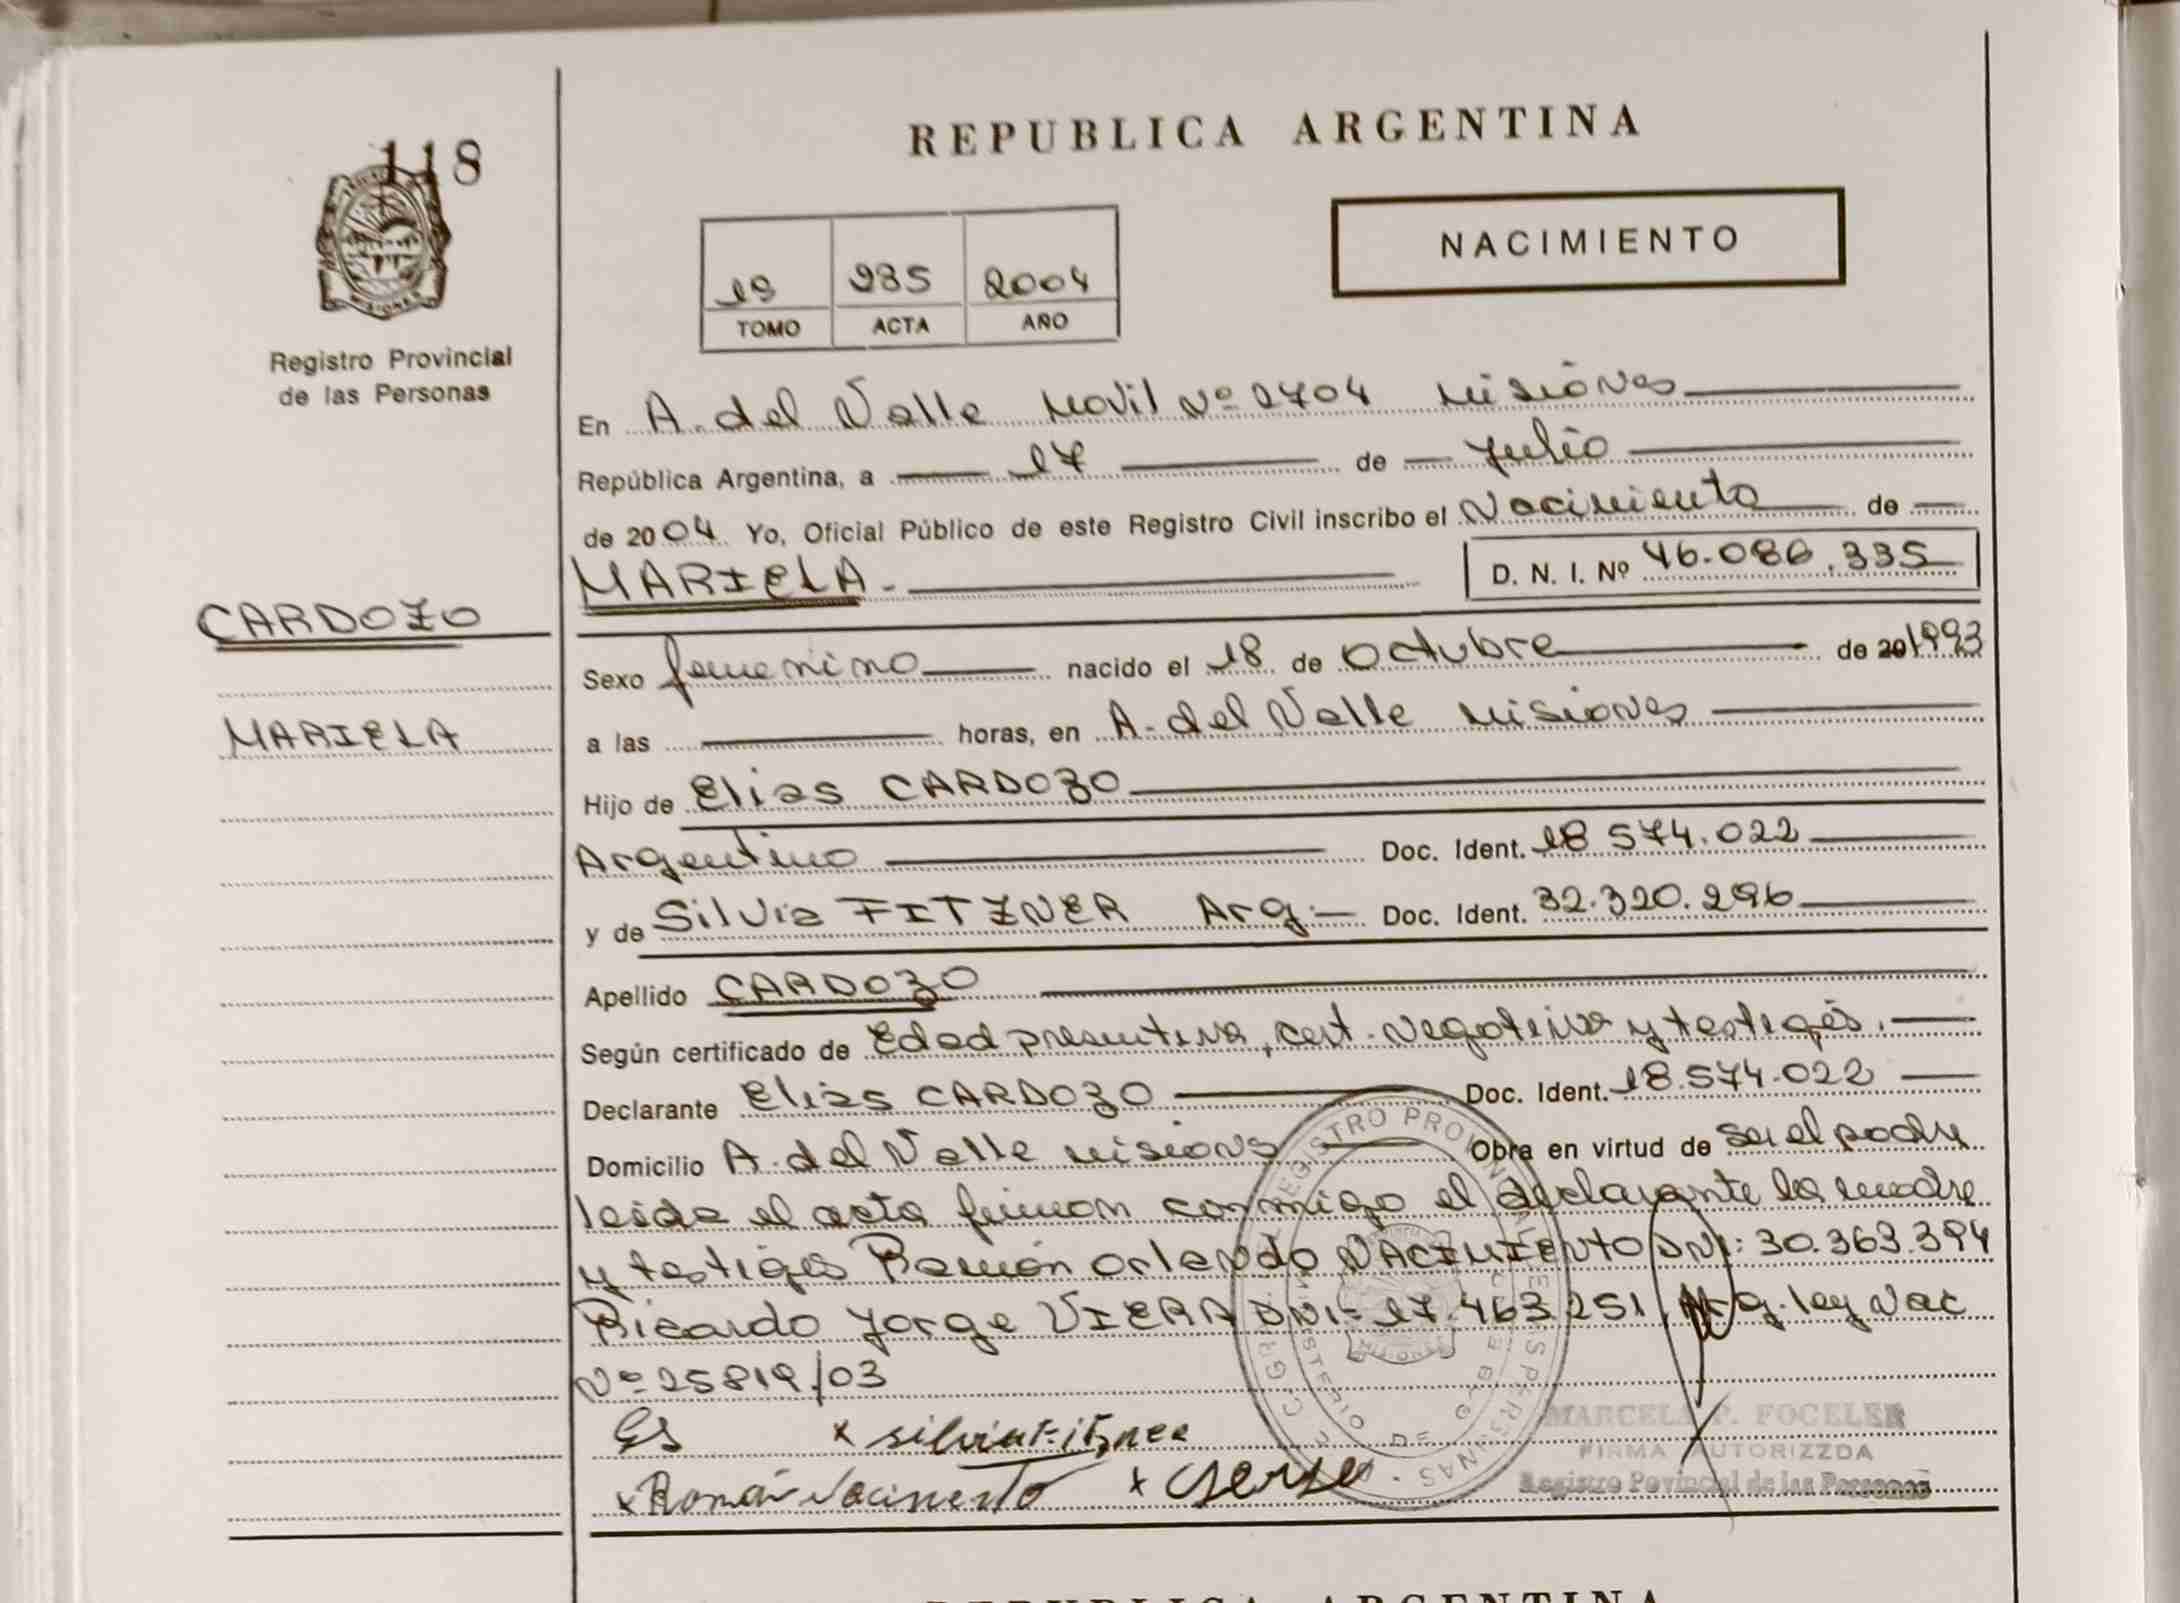 118
REPUBLICA ARGENTINA
NACIMIENTO
19 985 2004
TOMO ACTA AÑO
MISIONES
Registro Provincial
de las Personas
En A. del Valle Movil Nº 2704 Misiones
República Argentina, a 17 de Julio
de 2004. Yo, Oficial Público de este Registro Civil inscribo el Nacimiento de
MARIELA.- D. N. I. Nº 46.086.335
CARDOZO
MARIELA
Sexo femenino nacido el 18 de Octubre de 201993
a las horas, en A. del Valle Misiones
Hijo de Elias CARDOZO
Argentino Doc. Ident. 18 574.022
y de Silvia FITZNER Arg.- Doc. Ident. 32.320.296
Apellido CARDOZO
Según certificado de Edad presuntiva, cert. Negativa y testigos.
Declarante Elias CARDOZO Doc. Ident. 18.574.022
Domicilio A. del Valle Misiones Obra en virtud de Ser el padre
leida el acta firman conmigo el declarante la madre
y testigos Ramón Orlando NACIMIENTO DNI: 30.363.394
Ricardo Jorge VIERA DNI- 17.463.251, Arg. ley Nac
Nº 25819/03
x silvia Fitzner
x Ramón Nacimento x
REGISTRO PROVINCIAL DE LAS PERSONAS
MINISTERIO DE
MISIONES
MARCELA P. FOCELER
FIRMA AUTORIZZDA
Registro Povincial de las Personas
REPUBLICA ARGENTINA